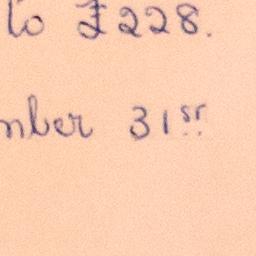 to £228.
mber 31st